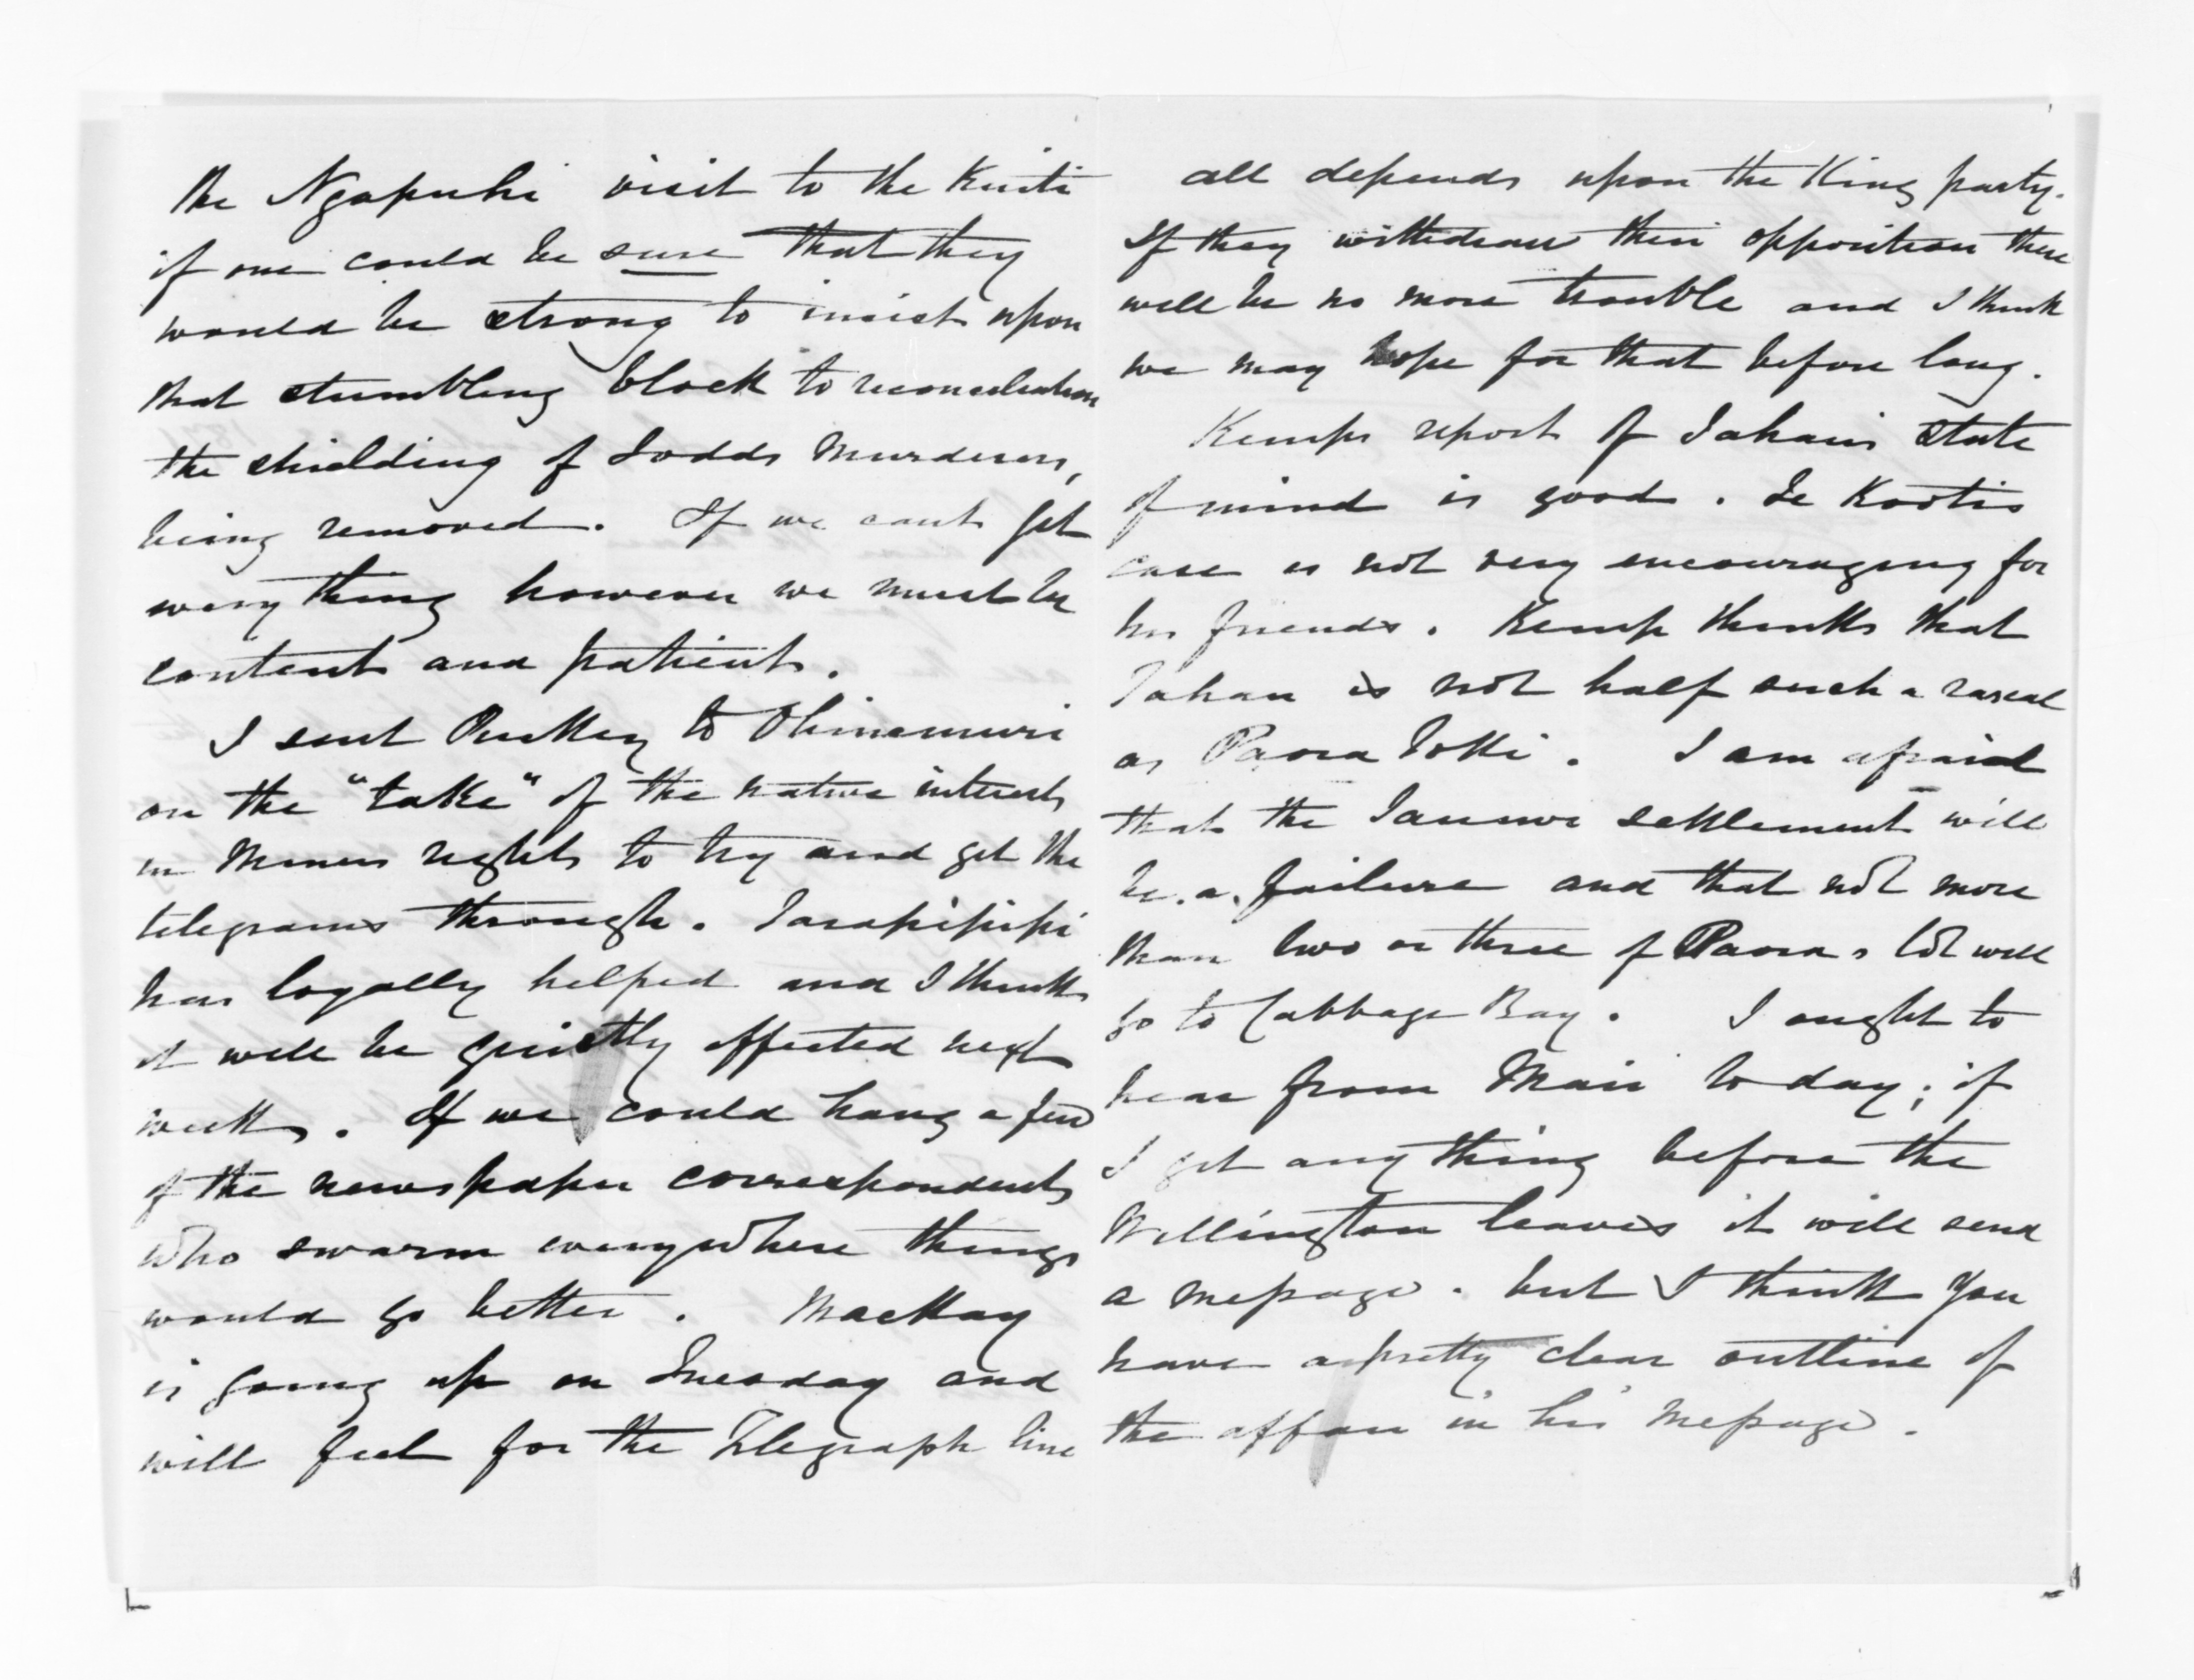 the Ngapuhi visit to the Kuiti
if one could be sure that they
would be strong to insist upon
that stumbling block to reconciliation
the shielding of Todds murderers,
being removed. If we cant get
every thing however we must be
content and patient.
I sent Puckey to Ohinemuri
on the "take" of the native interests
in Miners rights to try and get the
telegrams through. Tarapipipi
has loyally helped and I think
it will be quietly effected next
week. If we could hang a few
of the newspaper correspondents
who swarm everywhere things
would go better. Mackay
is going up on Tuesday and
will feel for the Telegraph line
all depends upon the King party.
If they withdraw their opposition there
will be no more trouble and I think
we may hope for that before long.
Kemps report of Tahais state
of mind is good. Te Kootis
case is not very encouraging for
his friends. Kemp thinks that
is not half such a rascal
as Paora Toki. I am afraid
that the settlement will
be a failure and that not more
than two or three of Paora s lot will
go to Cabbage Bay. I ought to
hear from Mair to day; if
I get any thing before the
Wellington leaves it will send
a message. but I think you
have a pretty clear outline of
the affair in his message.